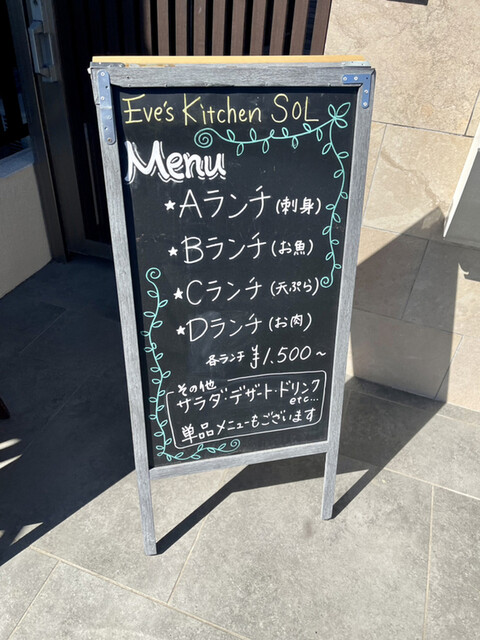 Eve's Kitchen SOL
Menu
★Aランチ(刺身)
★Bランチ(お魚)
★Cランチ(天ぷら)
★Dランチ(お肉)
各ランチ ¥1.500~
その他
サラダ・デザート・ドリンク
etc...
単品メニューもございます